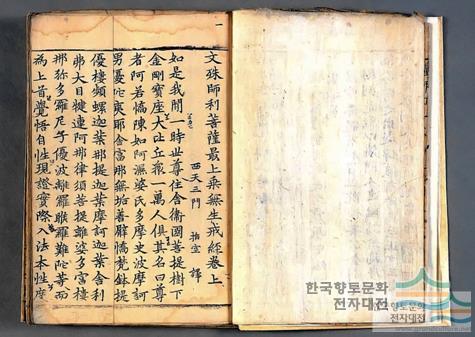 文殊師利菩薩最上乘無生戒經卷上
西天三門 指空 譯
如是我聞一時世尊住舍衛國菩提樹下
金剛寶座大比丘衆一萬人俱其名曰尊
者阿若憍陳如阿濕婆氏多摩史波摩訶
男憂陀夷耶舍富那無垢善臂憍梵鉢提
優樓頻螺迦葉那提迦葉摩訶迦葉舍利
弗大目犍連阿那律須菩提離婆多富樓
那弥多羅尼子優波離羅睺羅難陀等而
爲上首覺悟自性現證實際入法本性度
한국향토문화
전자대전
한국향토문화
전자대전